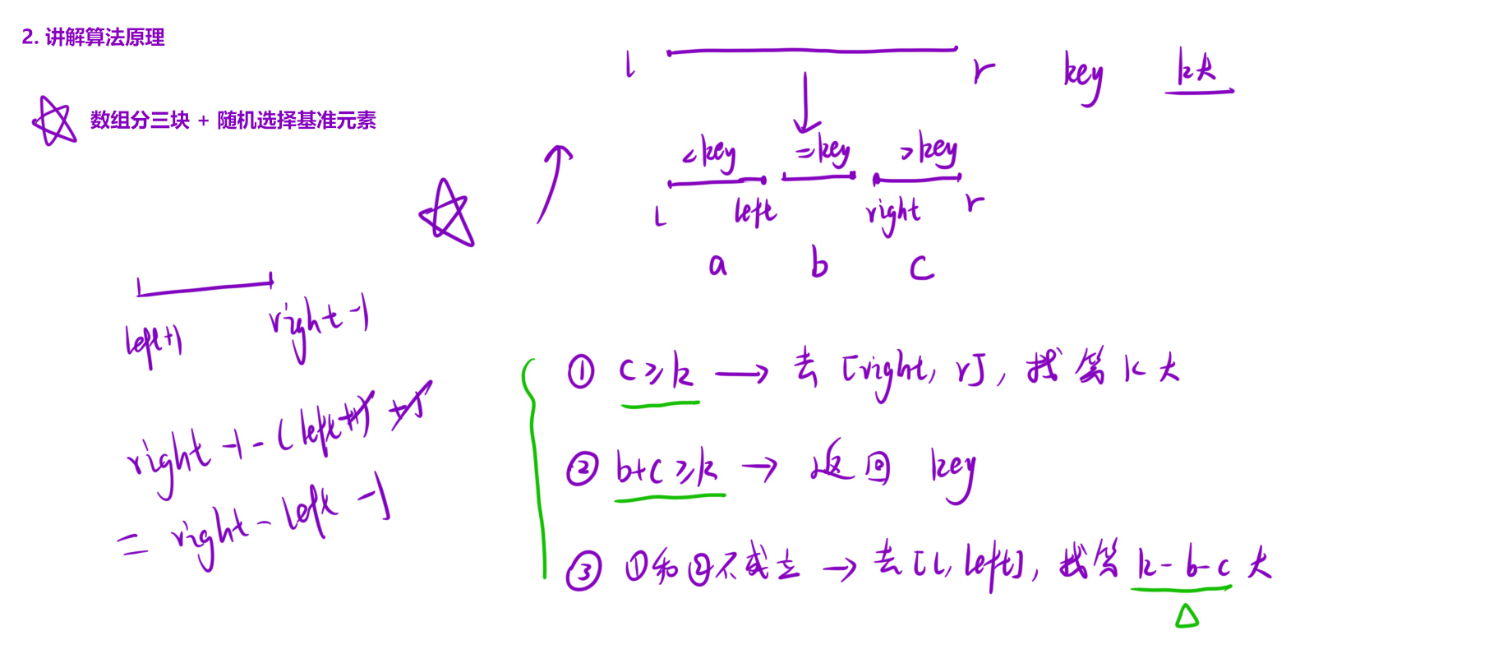 2. 讲解算法原理
l r key k大
数组分三块 + 随机选择基准元素
<key =key >key
l left right r
a b c
left+1 right-1
① c≥k → 去 [right, r], 找第 k 大
right-1-(left+1)+1
= right-left-1
② b+c≥k → 返回 key
③ ①和②不成立 → 去 [l, left], 找第 k-b-c 大